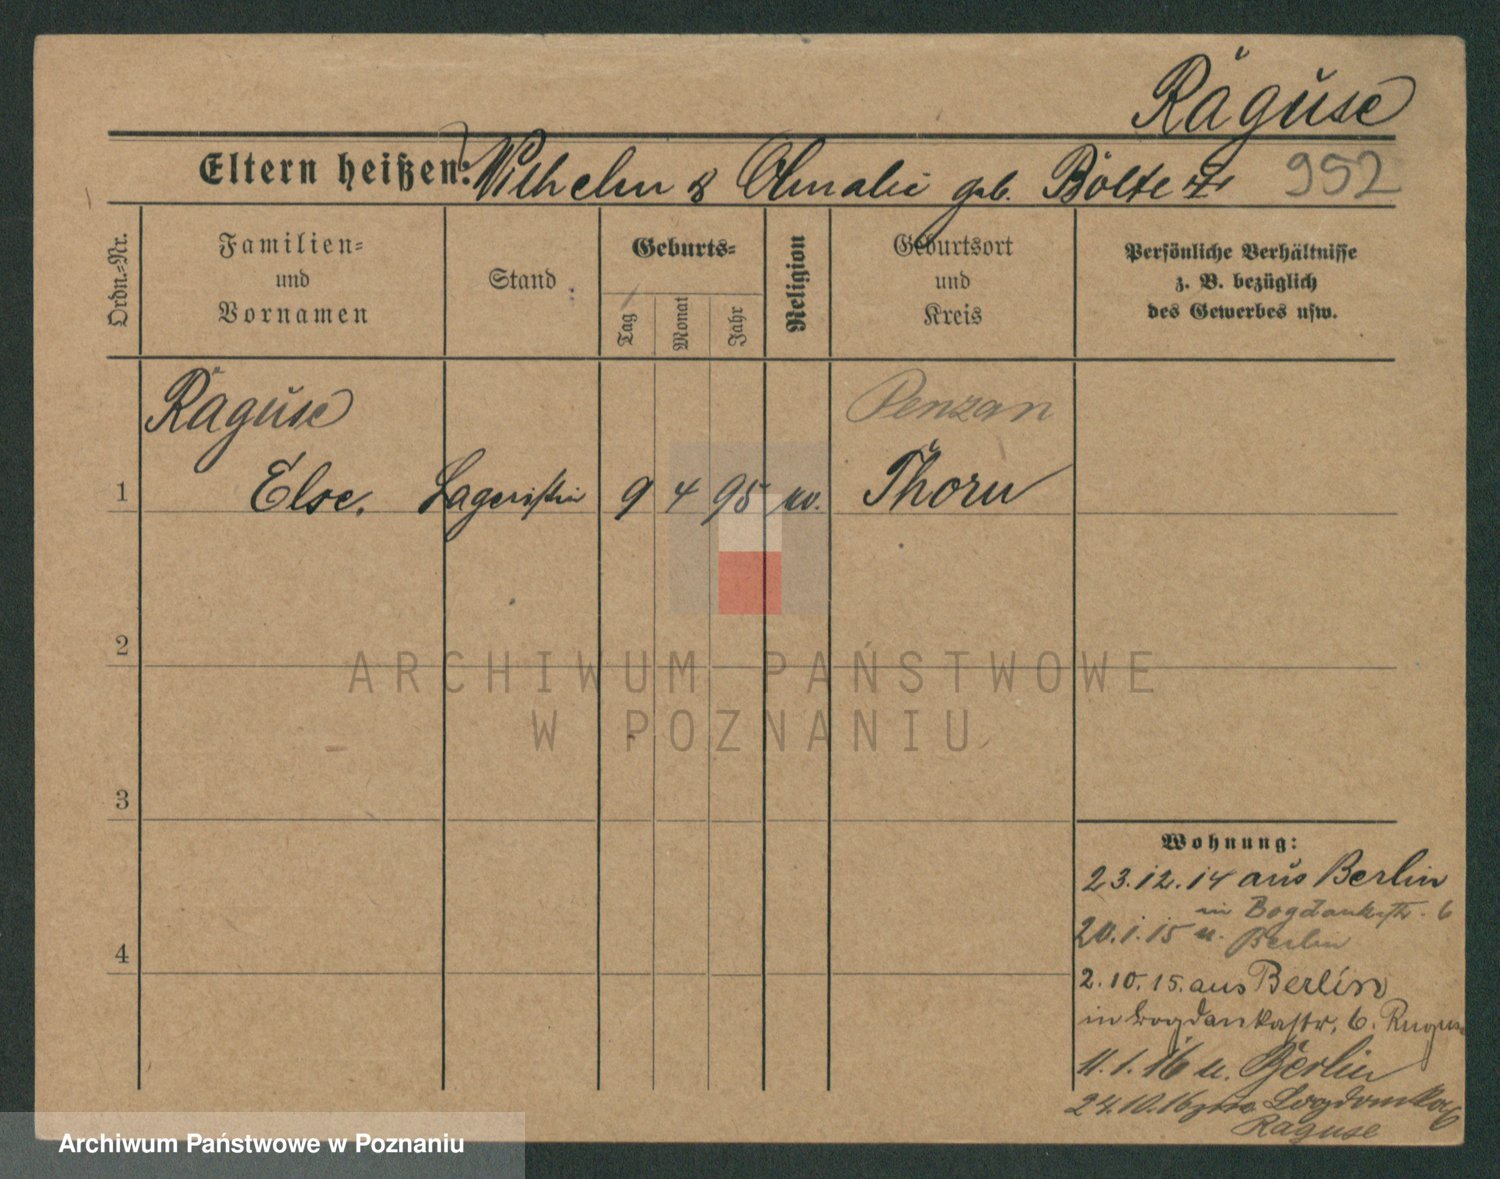 Räguse
Eltern heißen: Wilhelm & Amalie geb. Bölte
952
Ordn.=Nr.
Familien=
und
Vornamen
Stand
Geburts=
Tag
Monat
Jahr
Religion
Geburtsort
und
Kreis
Persönliche Verhältnisse
z. B. bezüglich
des Gewerbes usw.
Räguse
Penzan
1 Else. Lageristin 9 4 95 ev. Thorn
2
3
4
Wohnung:
23.12.14 aus Berlin
in Bogdankastr. 6
20.1.15 n. Berlin
2.10.15. aus Berlin
in Bogdankastr. 6.
11.1.16 n. Berlin
24.10.16 Bogdanka 6
Räguse
ARCHIWUM PAŃSTWOWE
W POZNANIU
Archiwum Państwowe w Poznaniu